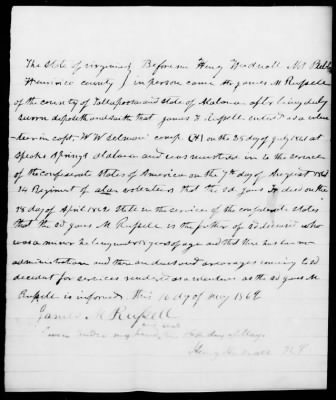 The State of virginia } Before me Henry Nidnall Not Public
Henrico county } in person came Mr James M Russell
of the county of Tallapoosa and state of Alabama after being duly
sworn deposeth and saith that James F Russell enlisted as a volun
teer in capt W W Selman comp (H) on the 28 day of July 1861 at
Speaks Springs alabama and was mustered in to the service
of the confederate states of America on the 7th day of August 1861
14 Regiment of alaa volenteers that the sd James F died on the
28 day of April 1862 still in the services of the confederate states
that the sd James M Russell is the father of sd deceased who
was a minor he being under 18 years of age and that there has been no
administration and there are due and arearages coming to sd
decedent for services rendered as a volenteer as the sd James M
Russell is informed This 16 day of May 1862
James M Russell
Given under my hand this 16 day of May
Henry N P